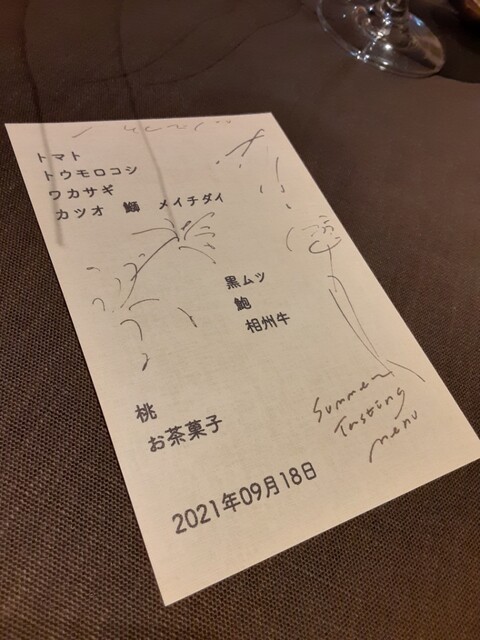 トマト
トウモロコシ
ワカサギ
カツオ 鰤 メイチダイ
黒ムツ
鮑
相州牛
桃
お茶菓子
2021年09月18日
Summer
Tasting
menu